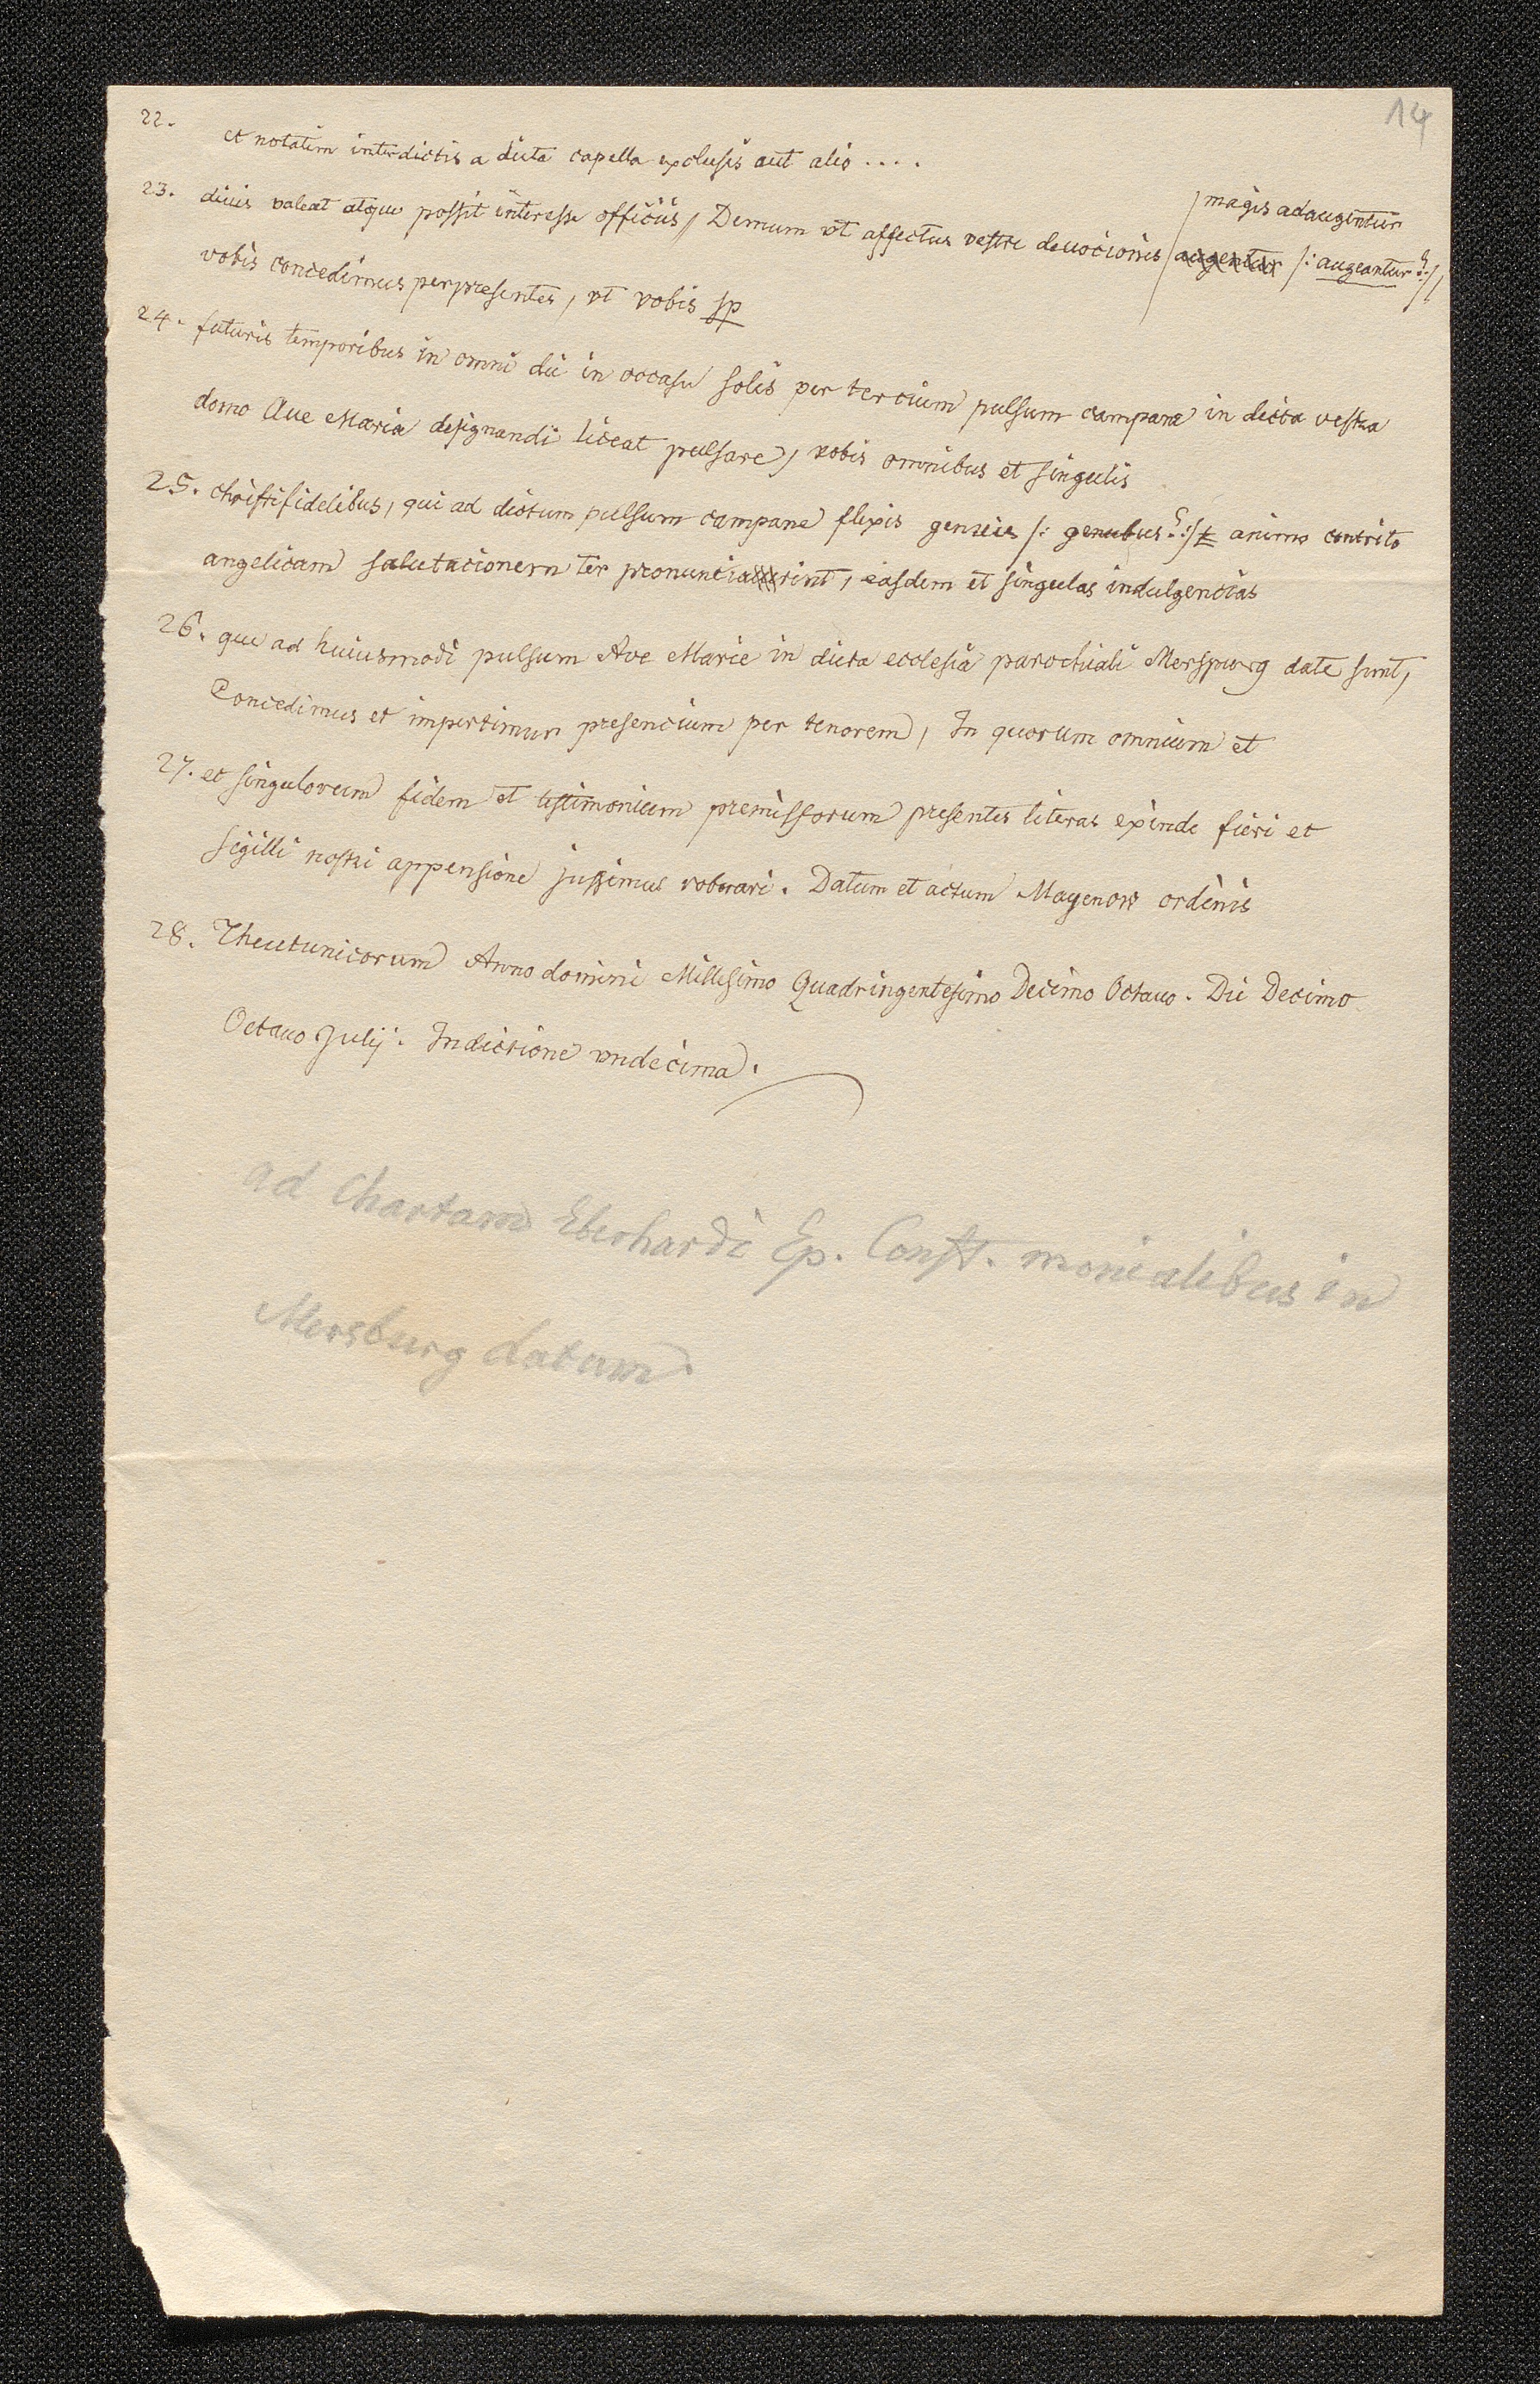 14
22. et notatim interdictis a dicta capella exclusis aut alio ....
magis adaugentur
23. diuis valeat atque possit interesse officiis // Demum vt affectus vestre deuocionis augentur /: augeantur ?:/,
vobis concedimus per presentes, vt vobis sp
24. futuris temporibus in omni die in occasu solis per tercium pulsum campana in dicta vestra
domo Aue Maria designandi liceat pulsare, vobis omnibus et singulis
25. christifidelibus, qui ad dictum pulsum campane flexis genuis /: genubus ?:/ et animo contrito
angelicam salutacionem ter pronunciarint, easdem et singulas indulgencias
26. que ad huiusmodi pulsum Ave Marie in dicta ecclesia parochiali Merspurg date sunt,
Concedimus et impertimur presencium per tenorem, In quorum omnium et
27. et singulorum fidem et testimonium premissorum presentes literas exinde fieri et
sigilli nostri appensione jussimus roborari. Datum et actum Mayenow ordinis
28. Theutunicorum Anno domini Millesimo Quadringentesimo Decimo Octauo. Die Decimo
Octauo Julij. Indictione vndecima.
ad Chartam Eberhardi Ep. Const. monialibus in
Mersburg datam.